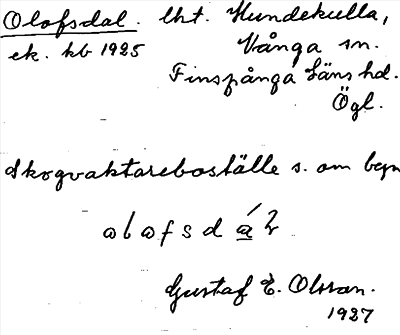 Olofsdal. lht. Hundekulla,
ek. kb 1925 Vånga sn.
Finspånga Läns hd.
Ögl.
Skogvaktareboställe s. om
Gustaf E. Olsson.
1927